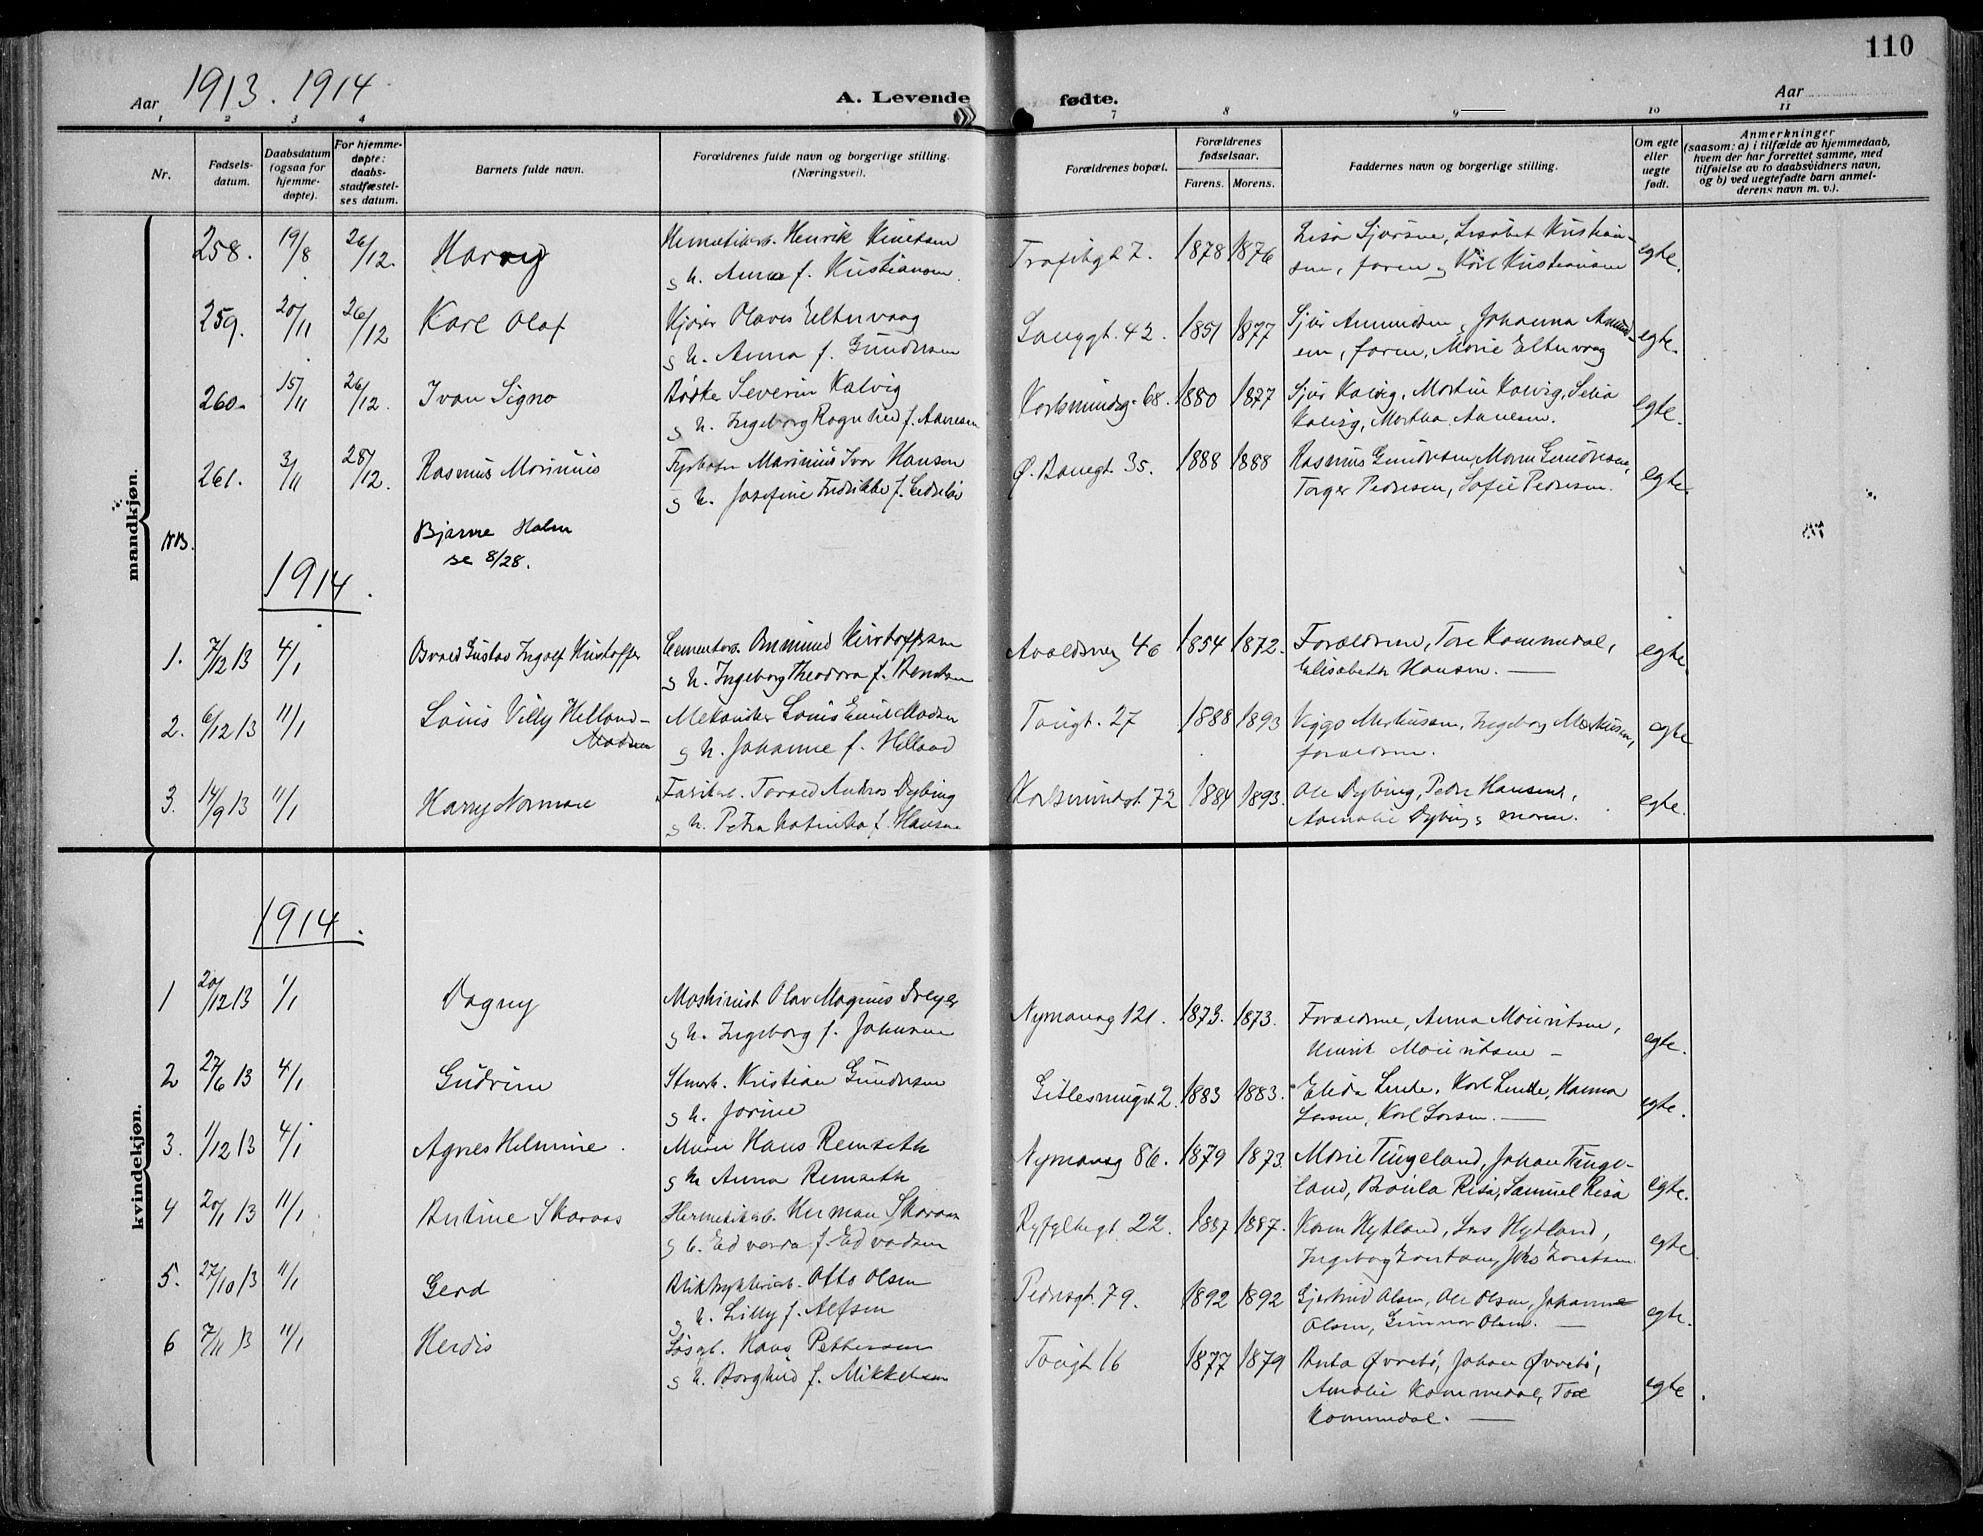 110
Aar 1913. 1914
A. Levende fødte.
Aar
1 2 3 4 7 8 9 10 11
Nr.
Fødsels-
datum.
Daabsdatum
(ogsaa for
hjemme-
døpte).
For hjemme-
døpte:
daabs-
stadfæstel-
ses datum.
Barnets fulde navn.
Forældrenes fulde navn og borgerlige stilling.
(Næringsvei).
Forældrenes bopæl.
Forældrenes
fødselsaar.
Farens. Morens.
Faddernes navn og borgerlige stilling.
Om egte
eller
uegte
født.
Anmerkninger
(saasom: a) i tilfælde av hjemmedaab,
hvem der har forrettet samme, med
tilføielse av to daabsvidners navn,
og b) ved uegtefødte barn anmel-
derens navn m. v.).
mandkjøn.
258. 19/8 26/12. Harry Henrik Knutsen
g h. Anna f. Kristiansen 7. 1878 1876 Lisabet Kristian-
sen, faren og Karl Kristiansen egte.
259. 20/11 26/12 Karl Olaf Kjører Olaves Eltervaag
g h. Anna f. Gundersen Langgt. 42. 1851 1877 Sjur Amundsen, Johanna Amund-
sen, faren, Marie Eltervaag egte.
260. 15/11 26/12. Ivan Signo Bødker Severin Kalvig
g h. Ingeborg Ragnhild f. Aanesen 68. 1880 1877 Sjur Kalvig, Martin Kalvig, Selia
Kalvig, Martha Aanesen. egte.
261. 3/11 28/12. Rasmus Marinius Marinius Ivar Hansen
g h. Josefine Fredrikke f. Ø. Banegt. 35. 1888 1888 Rasmus Gundersen, Maren Gundersen,
Torger Pedersen, Sofie Pedersen. egte.
NB. Bjarne Holm
se 8/28.
1914.
1. 7/12 13 4/1 Gustav Ingolf Kristoffer Ommund Kristoffersen
g h. Ingeborg Theodora f. Bendsen 46 1854 1872. Forældrene, Tore Kommedal,
Elisabeth Hansen. egte.
2. 6/12 13 11/1 Louis Villy Helland-
Madsen Mekaniker Louis Emil Madsen
g h. Johanne f. Helland Tougt. 27 1888 1893 Viggo Markussen, Ingeborg Markussen,
forældrene. egte
3. 14/9 13 11/1 Harry Norman Torald Andreas Dybing
g h. Petra Katinka f. Hansen 72 1884 1893. Ole Dybing, Peder Hansen,
Amalie Dybing, moren. egte.
kvindekjøn.
1914.
1 20/12 13 1/1 Dagny Maskinist Olav Magnus Dreyer
g h. Ingeborg f. Johnsen Nymansg 121. 1873. 1873. Forældrene, Anna Mouritsen,
Henrik Mouritsen egte.
2 27/6 13 4/1 Gudrun Kristian Gundersen
g h. Jorine 2. 1883 1883. Elida Linde, Karl Linde, Hanna
Larsen, Karl Larsen. egte.
3. 1/12 13 4/1 Agnes Helmine. Murer Hans Remseth
g h Anna Remseth Nymansg 86. 1879 1873. Marie Tingeland, Johan Tinge-
land, Risa, Samuel Risa egte.
4 20/1 13 11/1 Antine Skaraas Herman Skaraas
g h. Edvarda f. Edvardsen 22. 1887 1887. Karen Hytland, Lars Hytland,
Ingeborg egte.
5. 27/10 13 11/1 Gerd Otto Olsen
g h. Lilly f. Alfsen Pedersgt. 79. 1892 1892 Gjertrud Olsen, Ole Olsen, Johanne
Olsen, Gunnar Olsen. egte.
6 7/11 13 11/1 Herdis Løsgt. Hans Pettersen
g h. Borghild f. Mikkelsen Tougt 16 1877 1879 Berta Øvretø, Johan Øvretø,
Amalie Kommedal, Tore
Kommedal. egte.